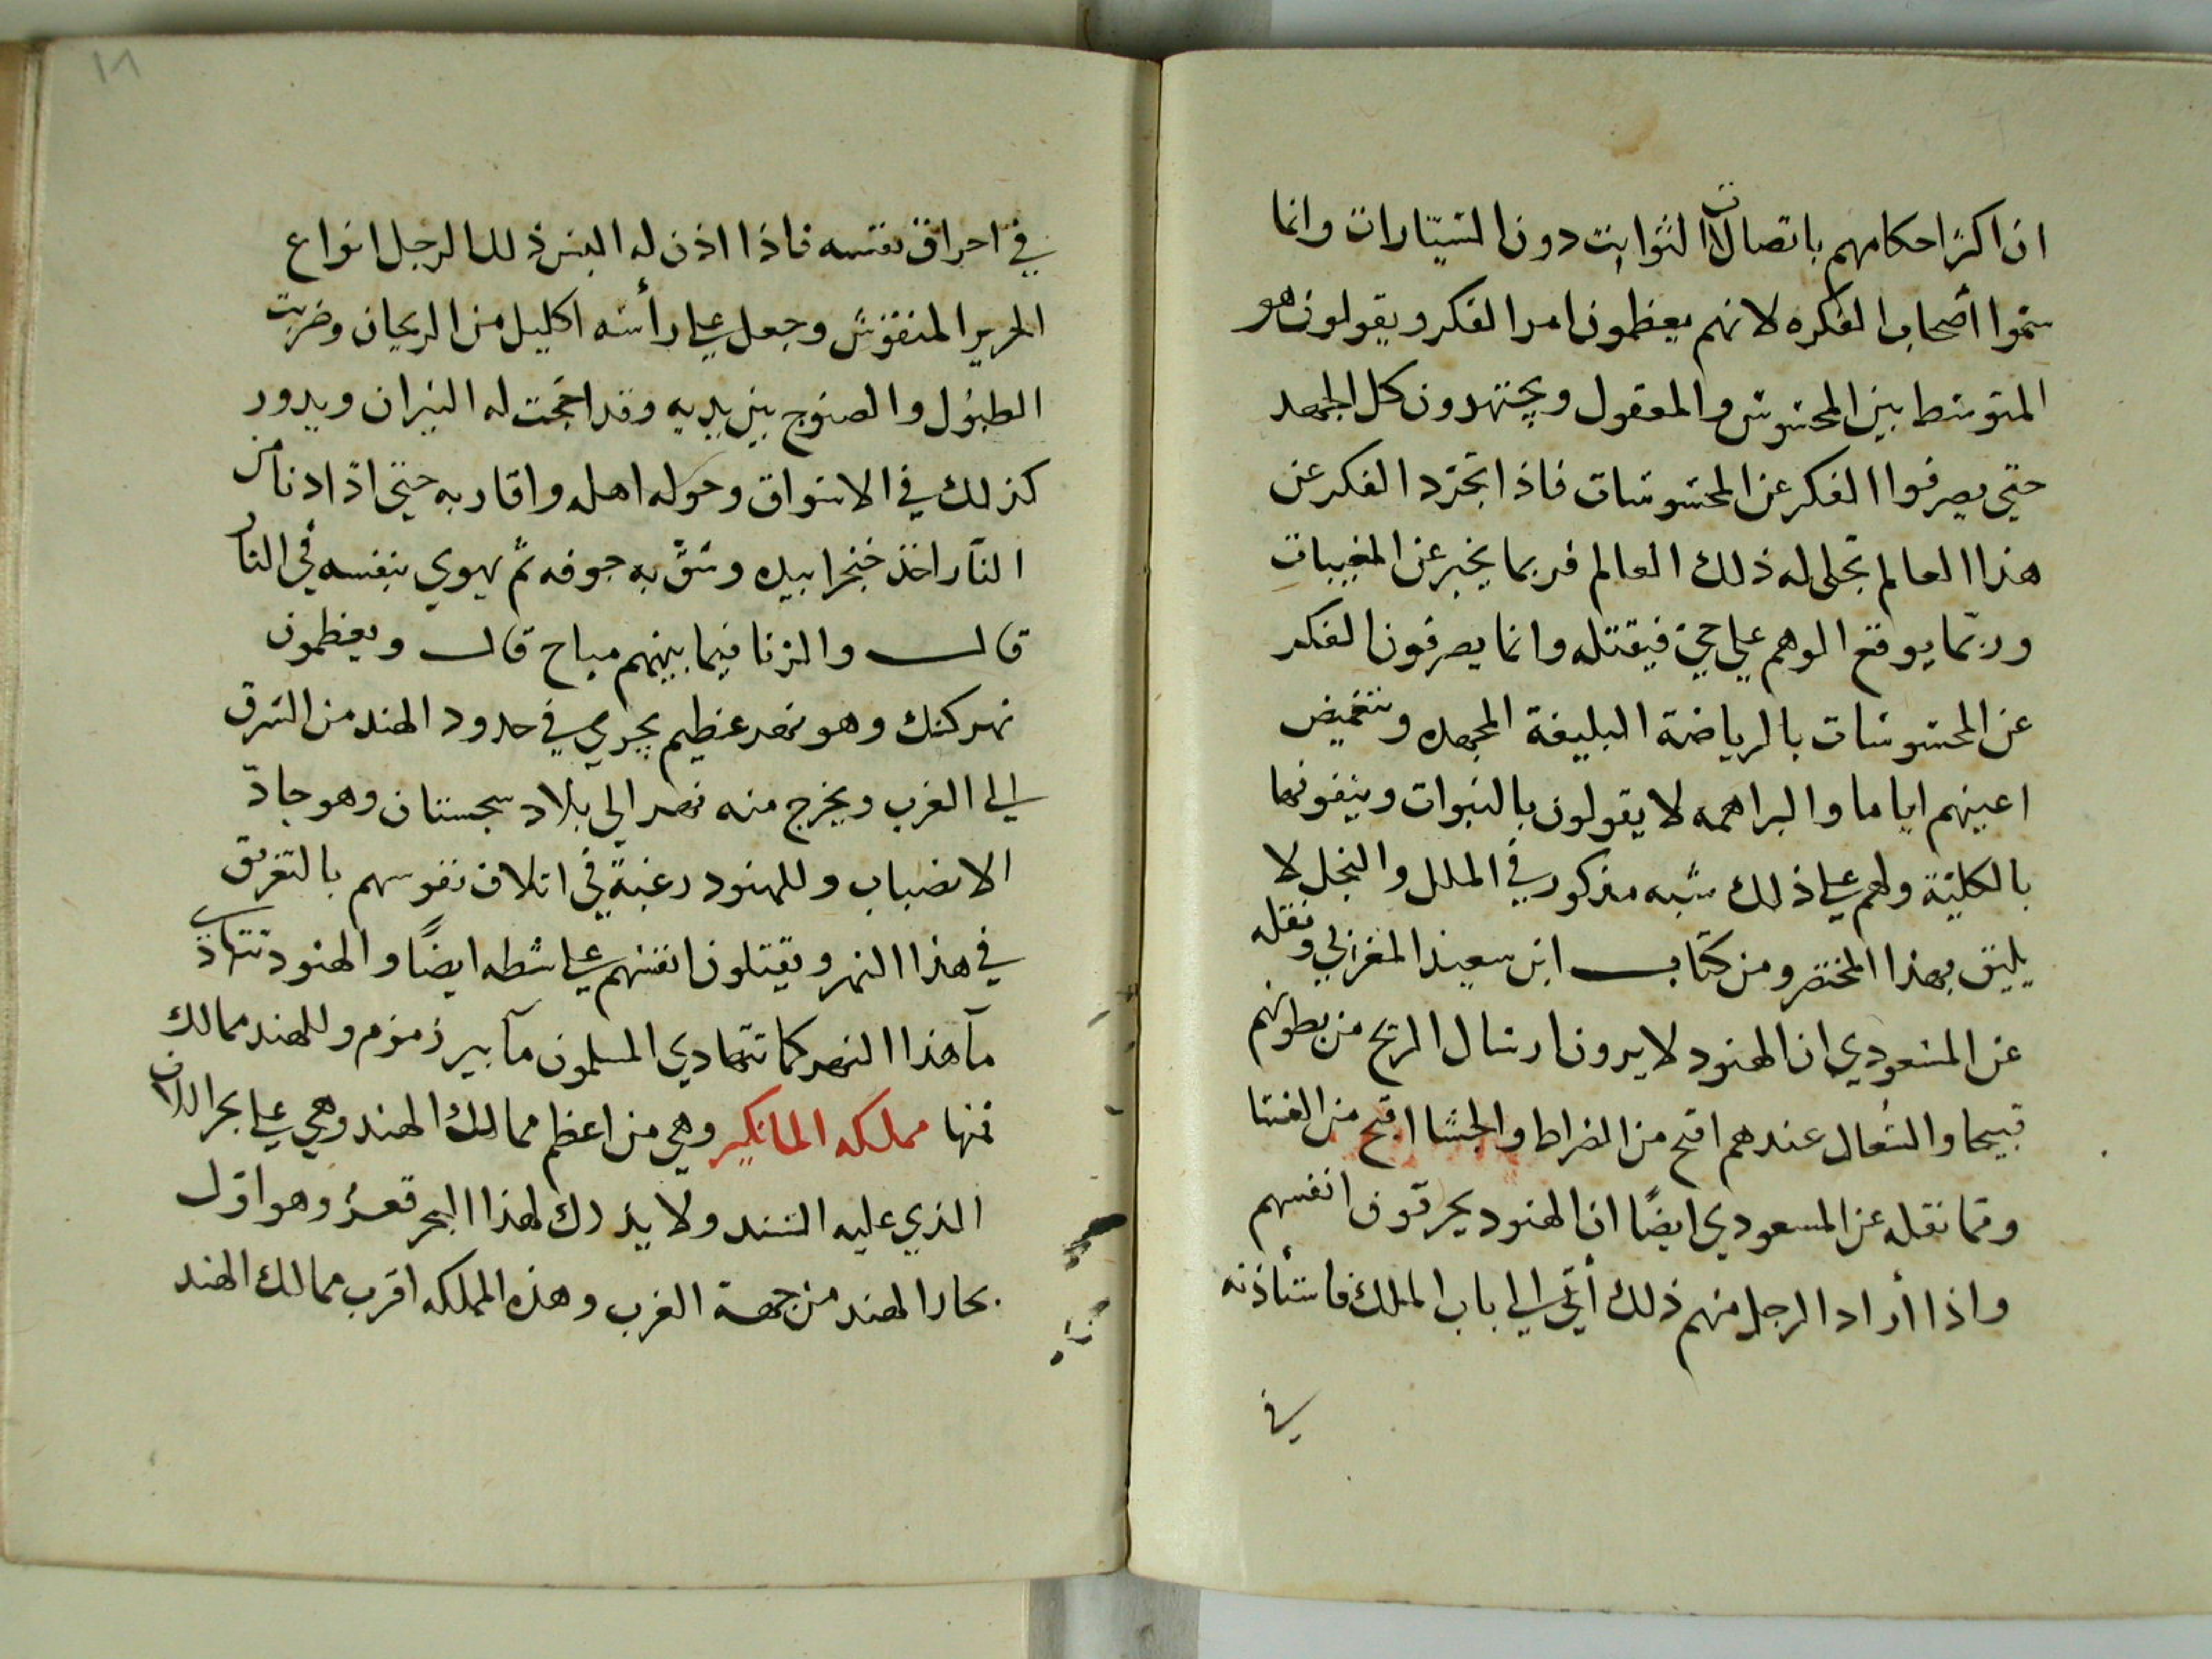 ان اكثر احكامهم باتصالات الثوابت دون السيّارات وانما
سمّوا أصحاب الفكره لانهم يعظمون امر الفكر ويقولون هو
المتوسط بين المحسوس والمعقول ويجتهدون كل الجهد
حتى يصرفوا الفكر عن المحسوسات فاذا تجرّد الفكر عن
هذا العالم تجلى له ذلك العالم فربما يخبر عن المغيبات
وربّما يوقع الوهم على حيّ فيقتله وانما يصرفون الفكر
عن المحسوسات بالرياضة البليغة المجهده وتغميض
اعينهم اياما والبراهمه لا يقولون بالنبوات وينفونها
بالكليّة ولهم على ذلك شبه مذكور في الملل والنحل لا
يليق بهذا المختصر ومن كتاب ابن سعيد المغربي ونقله
عن المسعودي ان الهنود لا يرون ارسال الريح من بطونهم
قبيحا والسُعال عندهم اقبح من الضراط والجشا اقبح من الفسا
وممّا نقله عن المسعودي ايضًا ان الهنود يحرقون انفسهم
واذا أراد الرجل منهم ذلك أتى الى باب الملك فاستأذنه
في
١٨
في احراق نفسه فاذا اذن له البس ذلك الرجل انواع
الحرير المنقوش وجعل على رأسه اكليل من الريحان وضربت
الطبول والصنوج بين يديه وقد اججت له النيران ويدور
كذلك في الاسواق وحوله اهله واقاربه حتى اذا دنا من
النّار اخذ خنجرا بيده وشقّ به جوفه ثمّ يهوي بنفسه في النار
قال والزنا فيما بينهم مباح قال ويعظمون
نهر كنك وهو نهر عظيم يجري في حدود الهند من الشرق
الى الغرب ويخرج منه نهر الى بلاد سجستان وهو حادّ
الانصباب وللهنود رغبة في اتلاف نفوسهم بالتغريق
في هذا النهر ويقتلون انفسهم على شطه ايضًا والهنود تتهادى
مآ هذا النهر كما تتهادي المسلمون مآ بير زمزم وللهند ممالك
فمنها مملكه المانكير وهي من اعظم ممالك الهند وهي على بحر اللان
الذي عليه السند ولا يدرك لهذا البحر قعرٌ وهو اوّل
بحار الهند من جهة الغرب وهذه المملكه اقرب ممالك الهند